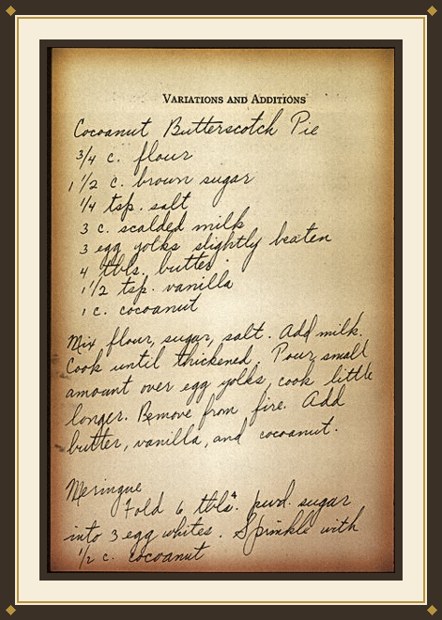 VARIATIONS AND ADDITIONS
Cocoanut Butterscotch Pie
3/4 c. flour
1 1/2 c. brown sugar
1/4 tsp. salt
3 c. scalded milk
3 egg yolks slightly beaten
4 tbls. butter.
1 1/2 tsp. vanilla
1 c. cocoanut
Mix flour, sugar, salt. Add milk.
Cook until thickened. Pour small
amount over egg yolks, cook little
longer. Remove from fire. Add
butter, vanilla, and cocoanut.
Meringue
Fold 6 tbls. pwd. sugar
into 3 egg whites. Sprinkle with
1/2 c. cocoanut